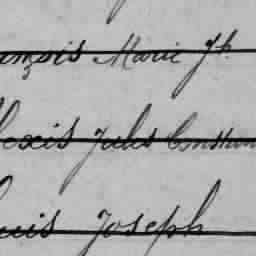 ançois Marie Jh.
lexis Jules Constan
ouis Joseph